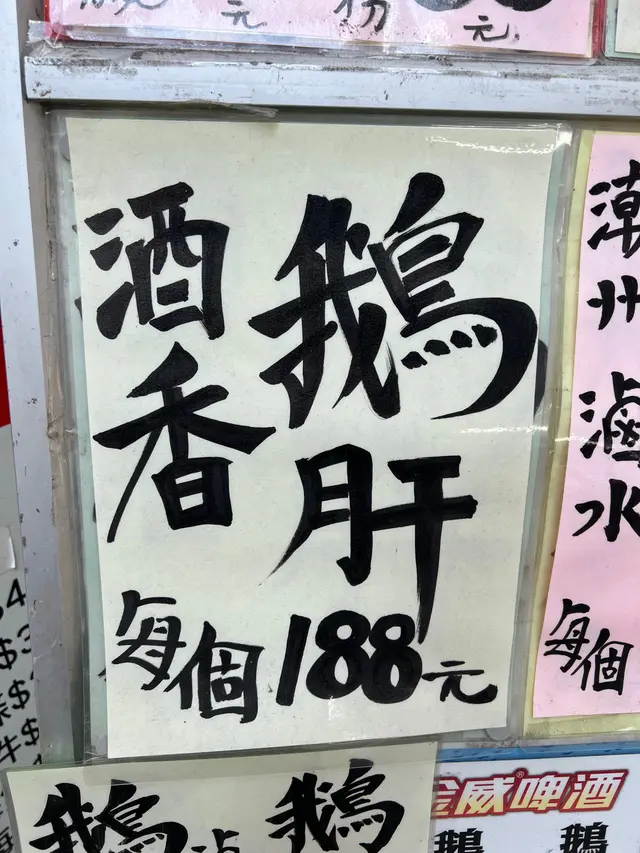 元
份
元
酒香
鵝肝
每個188元
潮州
滷水
每個
鵝
鵝
金威®啤酒
鵝
鵝